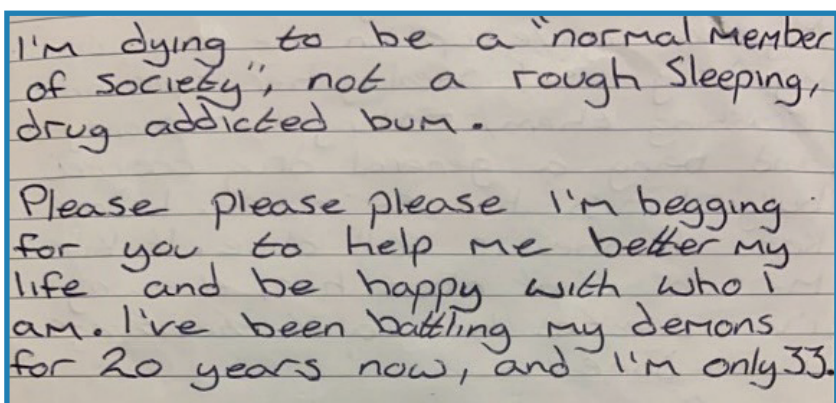 I'm dying to be a "normal member
of society", not a rough sleeping,
drug addicted bum.
Please please please I'm begging
for you to help me better my
life and be happy with who i
am. I've been battling my demons
for 20 years now, and I'm only 33.